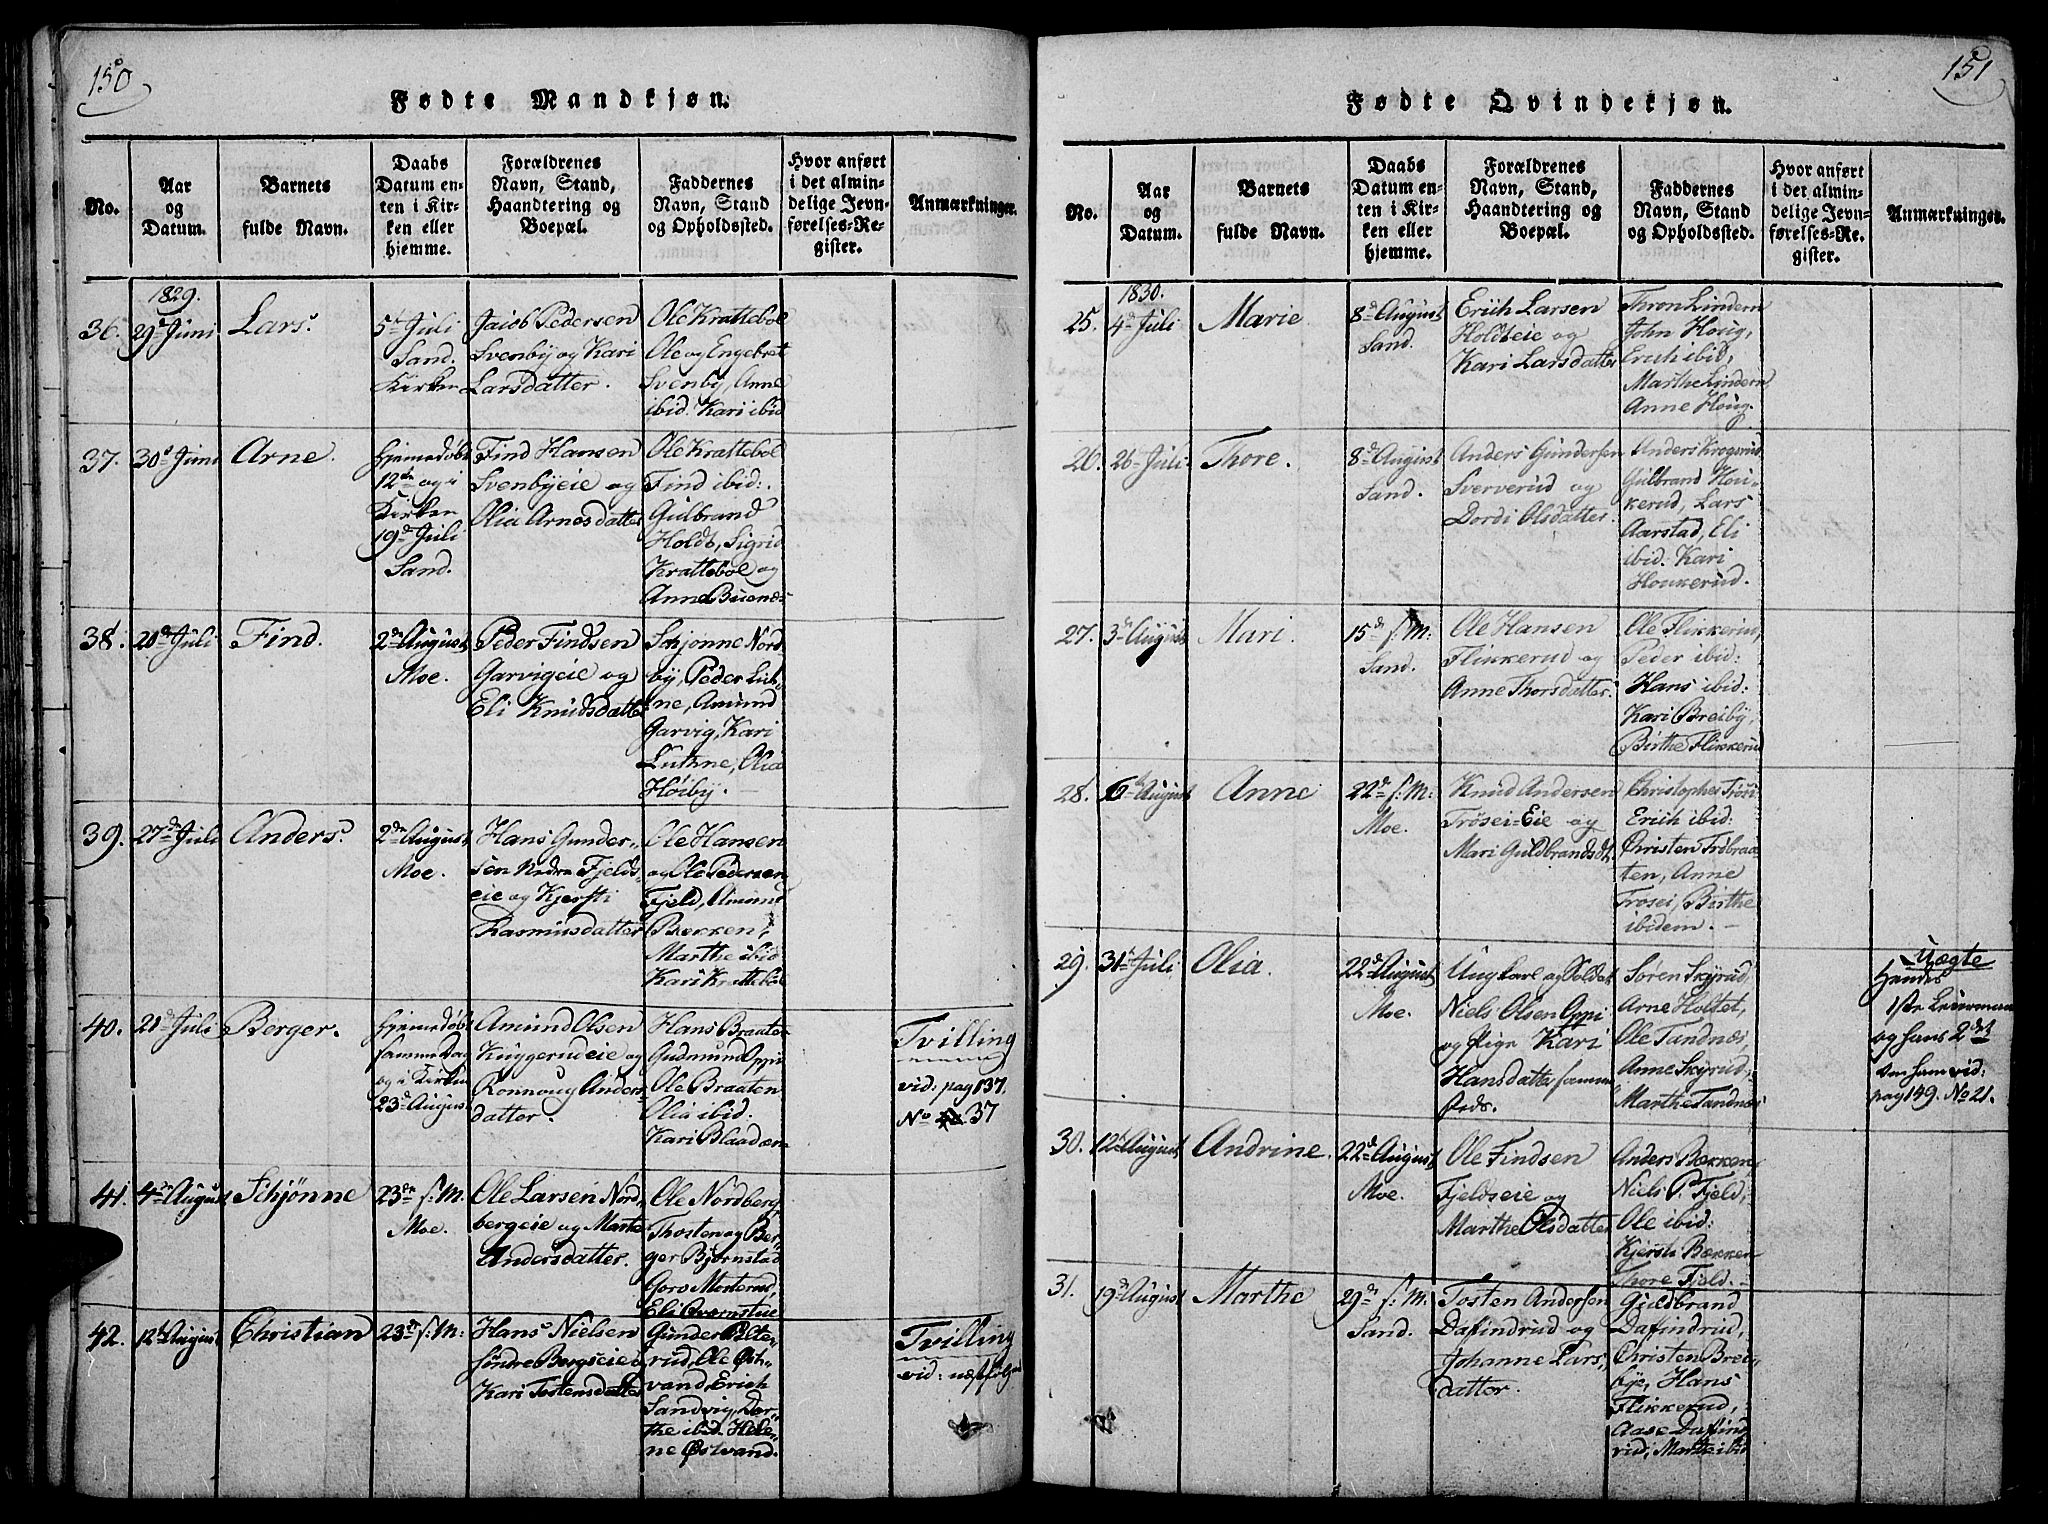 150
Fødte Mandkjøn.
No.
Aar
og
Datum.
Barnets
fulde Navn.
Daabs
Datum en-
ten i Kir-
ken eller
hjemme.
Forældrenes
Navn, Stand,
Haandtering og
Boepæl.
Faddernes
Navn, Stand
og Opholdssted.
Hvor anført
i det almin-
delige Jevn-
førelses-Re-
gister.
Anmærkninger.
1829.
36.
29de Juni
Lars.
5te Juli
Sand.
Kirken
Jacob Pedersen
Svenby og Kari
Larsdatter.
Ole Krattebøl
Ole og Engebret
Svenby, Anne
ibid. Kari ibid
37.
30te Juni
Arne.
Hjemedøbt
12te og i
Kirken
19de Juli
Sand.
Find Hansen
Svenbyeie og
Olia Arnesdatter
Ole Krattebøl
Find ibid:
Gulbrand
Holdt, Sigrid
Krattebøl og
Anne
38.
20de Juli
Find.
2den August
Moe.
Peder Findsen
Garvigeie og
Eli Knudsdatter
Schjønne Nord
by, Peder Luth-
ne, Amund
Garvig, Kari
Luthne, Olia
Høiby.
39.
27de Juli
Anders.
2den August
Moe.
Hans Gunder-
sen Nedre Fjelds-
eie og Kjersti
Rasmusdatter
Ole Hansen
og Ole Pedersen
Fjeld, Amund
Bækken,
Marthe ibid
Kari Krattebøl
40.
21de Juli
Berger.
Hjemedøbt
samme Dag
og i Kirken
23de August
Amund Olsen
Kuggerudeie og
Ronnoug Anders
datter.
Hans Braaten
Gudmund Oppi
Ole Braaten
Olia ibid.
Kari Blaadæn
Tvilling
vid: pag 137.
No 37
41.
4de August
Schjønne
23de s: M.
Moe.
Ole Larsen Nord-
bergeie og Marte
Andersdatter.
Ole Nordberg,
Thosten og Ber-
ger Bjørnstad
Goro Morterud,
Eli Qvernstuie
42.
12te August
Christian
23de s: M:
Hans Nielsen
søndre Bergseie
Kari Tostensdatter
Gunder Pelte-
rud, Ole Øst-
vand, Erich
Sandvig, Dor-
the ibid. Hele-
ne Østvand.
Tvilling
vid: næstfølg
151
Fødte Qvindekjøn.
No.
Aar
og
Datum.
Barnets
fulde Navn.
Daabs
Datum en-
ten i Kir-
ken eller
hjemme.
Forældrenes
Navn, Stand,
Haandtering og
Boepæl.
Faddernes
Navn, Stand
og Opholdssted.
Hvor anført
i det almin-
delige Jevn-
førelses-Re-
gister.
Anmærkninger.
1830.
25.
4de Juli
Marie
8de August
Sand.
Erich Larsen
Holdteie og
Kari Larsdatter
Thron Lindern
John Houg,
Erich ibid,
Marthe Lindern
Anne Houg.
26.
26de Juli
Thore.
8de August
Sand.
Anders Gundersen
Sververud og
Dordi Olsdatter.
Anders Krogsrud
Gulbrand Hou-
kerud, Lars
Aarstad, Eli
ibid. Kari
Houkerud.
27.
3de August
Mari.
15de s: M:
Sand.
Ole Hansen
Flikkerud og
Anne Thorsdatter.
Ole Flikkerud,
Peder ibid:
Hans ibid:
Kari Breiby,
Birthe Flikkerud
28.
6te August
Anne
22de s: M:
Moe.
Knud Andersen
Trøsei-Eie og
Mari Guldbrandsdt
Christopher Trøsei
Erich ibid:
Christen Trøbraa-
ten, Anne
Trøsei, Birthe
ibidem.
29.
31te Juli
Olia.
22de August
Moe.
Ungkarl og Soldat
Niels Olsen Oppi
og Pige Kari
Hansdatter samme-
steds.
Søren Skyrud,
Arne Holtet,
Ole Tandnæs,
Anne Skyrud,
Marthe Tandnæs
Uægte
Hendes
1ste Leiermaal
og hans 2det
vid:
pag 149. No 21.
30.
12te August
Andrine.
22de August
Moe.
Ole Findsen
Fjeldseie og
Marthe Olsdatter
Anders Bækken
Niels P. Fjeld,
Ole ibid:
Kjersti Bækken
Thore Fjeld.
31.
19de August
Marthe
29de s: M:
Sand.
Tosten Andersen
Dafindrud og
Johanne Lars-
datter.
Guldbrand
Dafindrud,
Christen Brei-
bye, Hans
Flikkerud,
Aase Dafind
rud, Marthe ibid